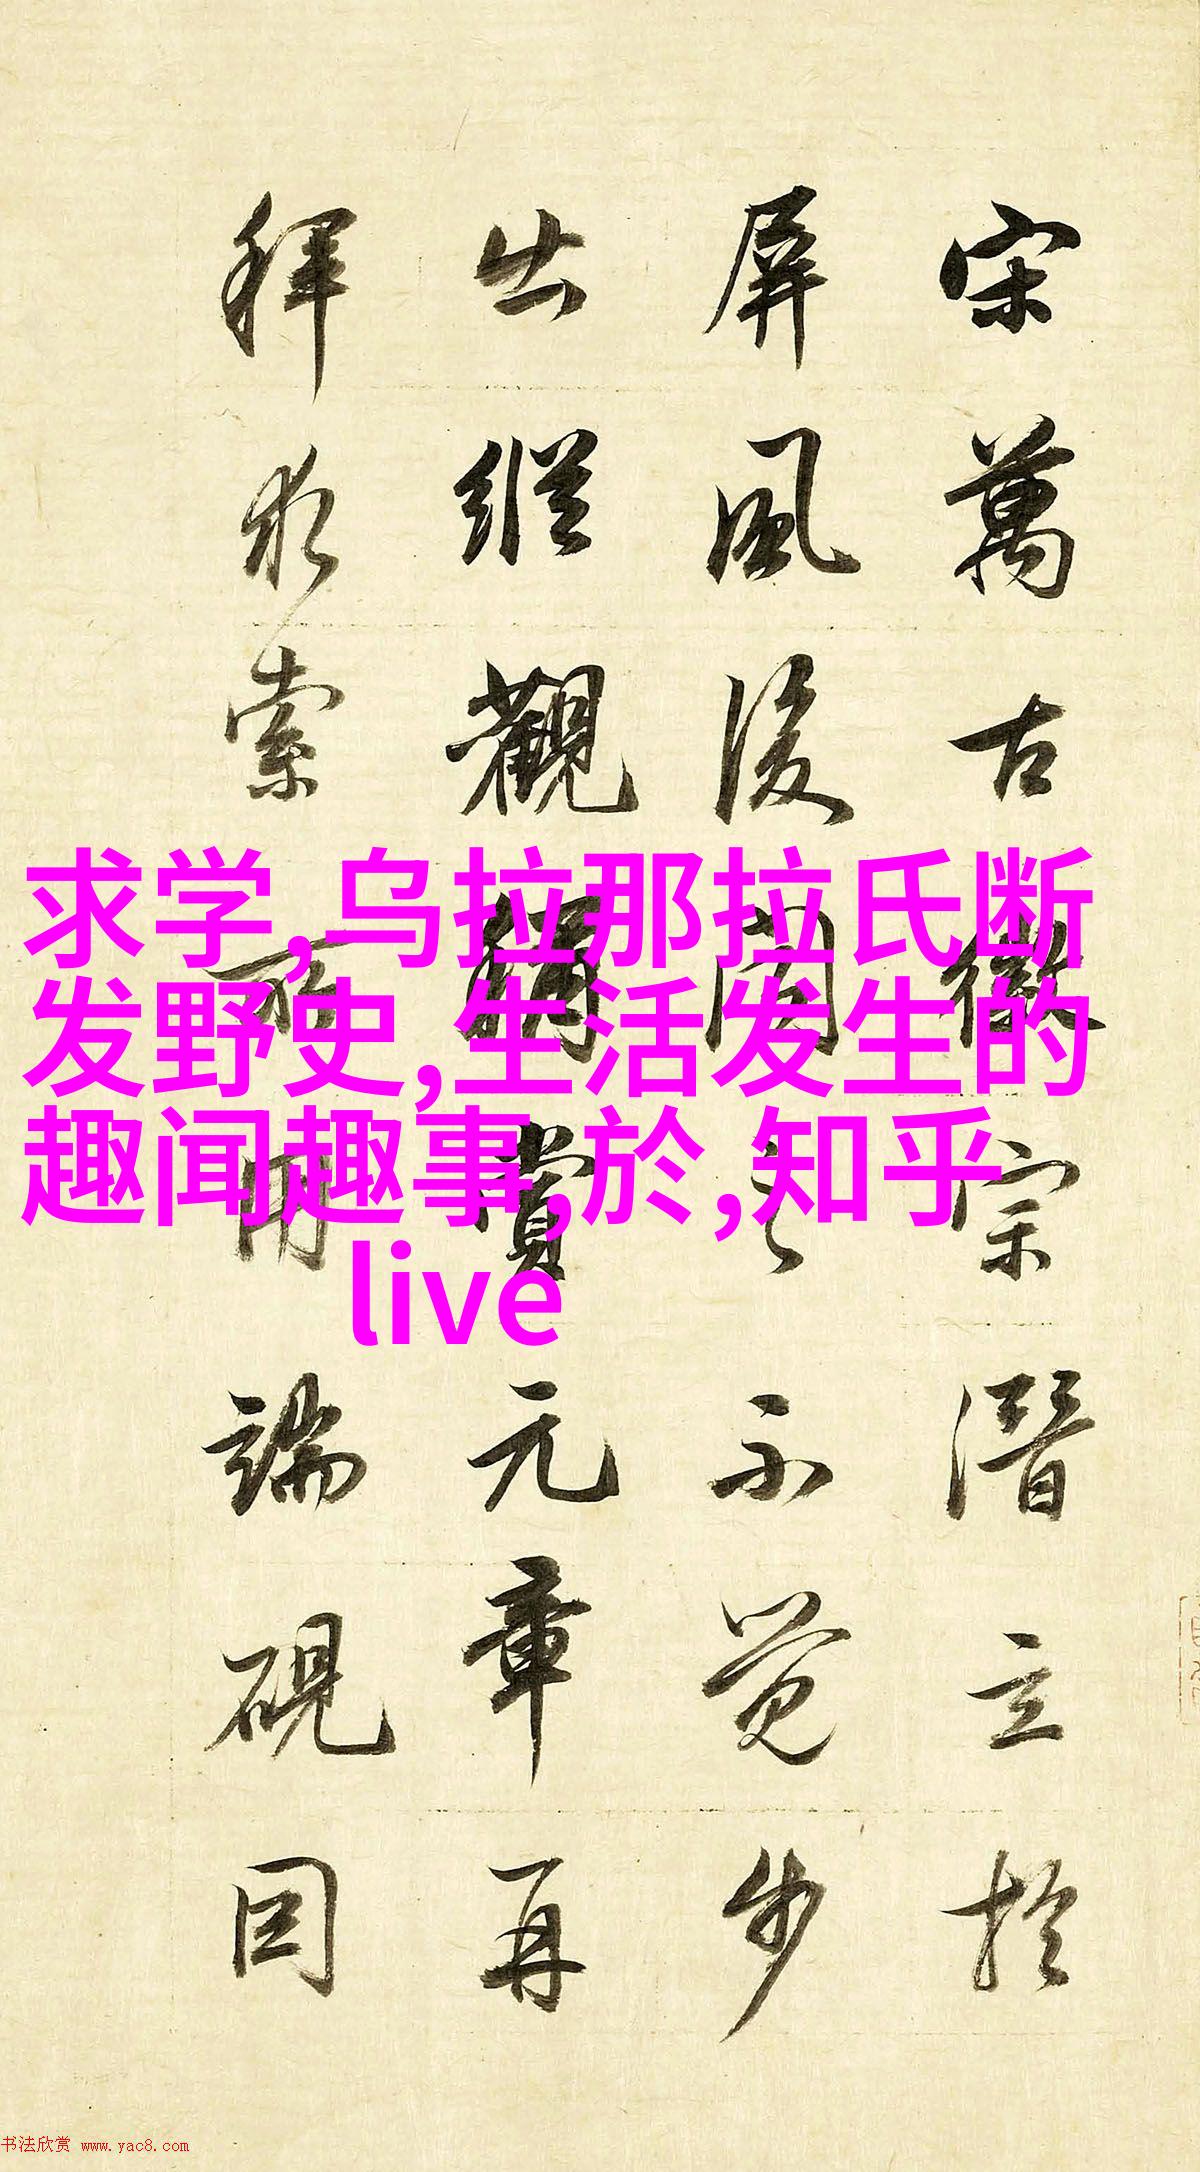 宋萬古徽宗潛立於
屏風後聞之不覺步
出縱觀稱賞元章再
拜求索所用端硯因
求学,乌拉那拉氏断
发野史,生活发生的
趣闻趣事,於,知乎
live
书法欣赏 www.yac8.com